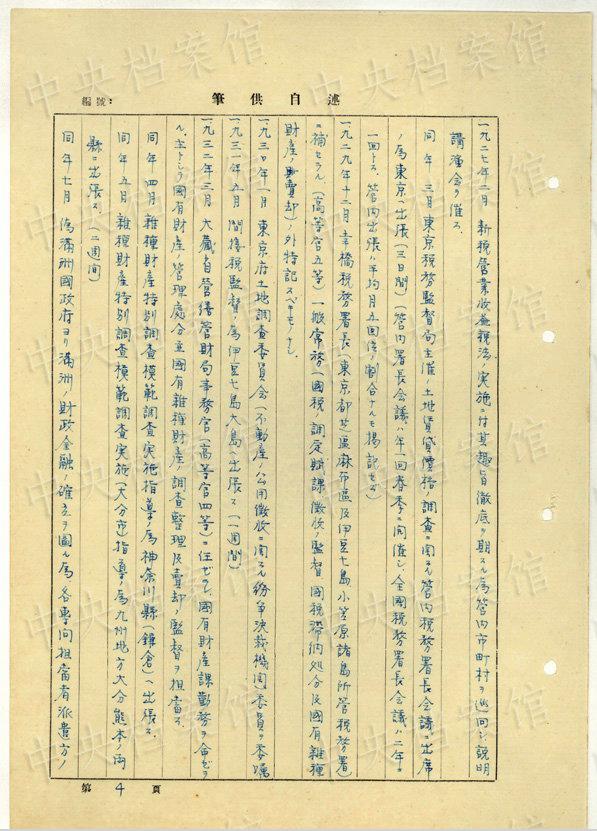 編號：
筆供自述
一九二七年二月 新稅營業收益稅法ノ実施ニ付其趣旨徹底ヲ期スル為管内市町村ヲ巡回シ説明
講演会ヲ催ス
同年 三月東京税務監督局主催ノ土地賃貸價格ノ調査ニ関スル管内税務署長会議ニ出席
ノ為東京ヘ出張(三日間)(管内署長会議ハ年一回春季ニ開催シ、全國税務署長会議ハ二年ニ
一回トス、管内出張ハ平均月五回位ノ割合ナルモ揚記セズ)
一九二九年十二月 幸橋税務署長(東京都芝區麻布區及伊豆七島小笠原諸島所管税務署)
ニ補セラル、(高等官五等) 一般常務(國税ノ調定賦課徴收ノ監督 國税滞納処分及國有雜種
財産ノ賣却)ノ外特記スベキモノナシ
一九三〇年一月 東京府土地調査委員会(不動産ノ公用徴收ニ関スル紛争決裁機関)委員ヲ委嘱
一九三一年五月 間接税監督ノ為伊豆七島大島ヘ出張ス(一週間)
一九三二年三月 大藏省営繕管財局事務官(高等官四等)ニ任ゼラレ、國有財産課勤務ヲ命ゼラ
ル、主トシテ國有財産ノ管理處分並國有雜種財産ノ調査整理及賣却ノ監督ヲ担當ス
同年 四月 雜種財産特別調査模範調査実施指導ノ為神奈川縣(鎌倉)ヘ出張ス
同年 五月 雜種財産特別調査模範調査実施(大分市)指導ノ為九州地方大分熊本ノ両
縣ニ出張ス、(二週間)
同年七月 偽滿洲國政府ヨリ滿洲ノ財政金融確立ヲ圖ル為各專門担當者派遣方ノ
第4頁
中央档案馆